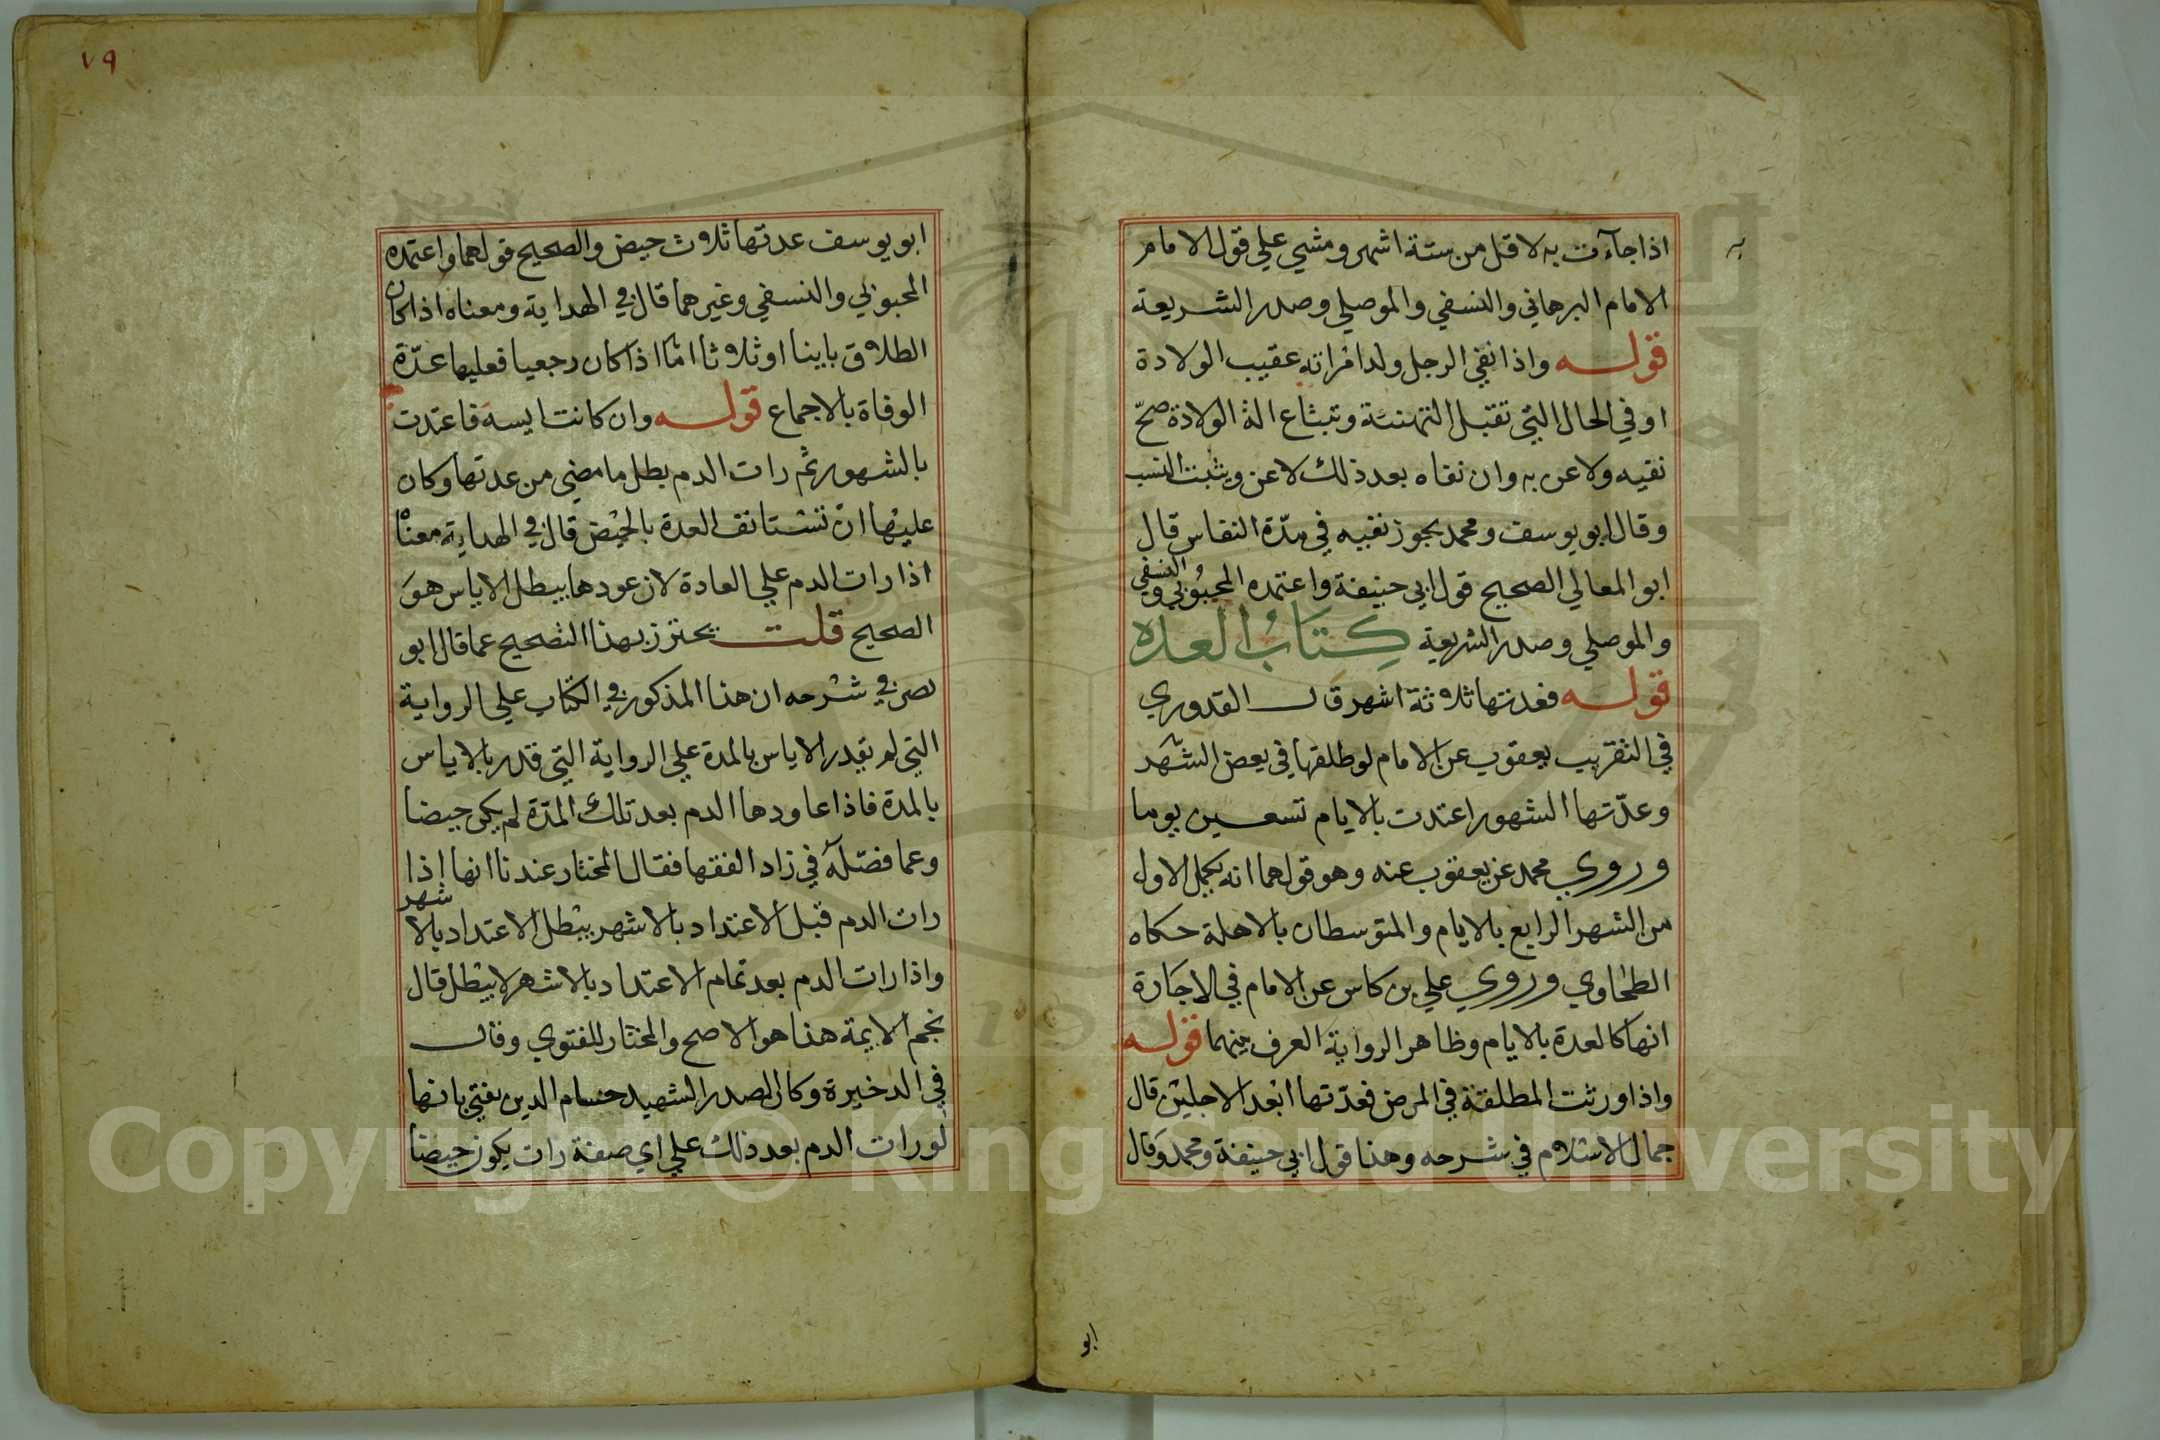 اذا جآءت به لاقل من ستة اشهر ومشي علي قول الامام
الامام البرهاني والنسفي والموصلي وصدر الشريعة
قوله واذا نفي الرجل ولد امراته عقيب الولادة
او في الحال التي تقبل التهنئة وتبتاع الة الولادة صحّ
نفيه ولاعن به وان نفاه بعد ذلك لاعن ويثبت النسب
وقال ابو يوسف ومحمد يجوز نفيه في مدّة النفاس قال
ابو المعالي الصحيح قول ابي حنيفة واعتمده المحبوبي والنسفي
والموصلي وصدر الشريعة كتاب العده
قوله فعدتها ثلاثة اشهر قال القدوري
في التقريب يعقوب عن الامام لو طلقها في بعض الشهر
وعدّتها الشهور اعتدت بالايام تسعين يوما
وروي محمد عن يعقوب عنه وهو قولهما انه يكمل الاول
من الشهر الرابع بالايام والمتوسطان بالاهلة حكاه
الطحاوي وروي علي بن كاس عن الامام في الاجارة
انها كالعدة بالايام وظاهر الرواية العرف بينهما قوله
واذا ورثت المطلقة في المرض فعدّتها ابعد الاجلين قال
جمال الاسلام في شرحه وهذا قول ابي حنيفة ومحمد وقال
ابو
٧٩
ابو يوسف عدتها ثلاث حيض والصحيح قولهما واعتمده
المحبوبي والنسفي وغيرهما قال في الهداية ومعناه اذا كان
الطلاق باينا او ثلاثا امّا اذا كان رجعيا فعليها عدّة
الوفاة بالاجماع قوله وان كانت ايسة فاعتدت
بالشهور ثم رات الدم بطل ما مضي من عدتها وكان
عليها ان تستانف العدة بالحيض قال في الهداية معناه
اذا رات الدم علي العادة لان عودها يبطل الاياس هو
الصحيح قلت يحترز بهذا التصحيح عما قال ابو
نصر في شرحه ان هذا المذكور في الكتاب علي الرواية
التي لم يقدر الاياس بالمدة علي الرواية التي قدر بالاياس
بالمدة فاذا عاودها الدم بعد تلك المدّة لم يكن حيضا
وعما فصّله في زاد الفقها فقال المختار عندنا انها اذا
رات الدم قبل الاعتداد بالاشهر يبطل الاعتداد بالاشهر
واذا رات الدم بعد تمام الاعتداد بالاشهر لا يبطل قال
نجم الايمة هذا هو الاصح والمختار للفتوي وقال
في الدخيرة وكان الصدر الشهيد حسام الدين يفتي بانها
لو رات الدم بعد ذلك علي اي صفة رات يكون حيضا
Copyright © King Saud University